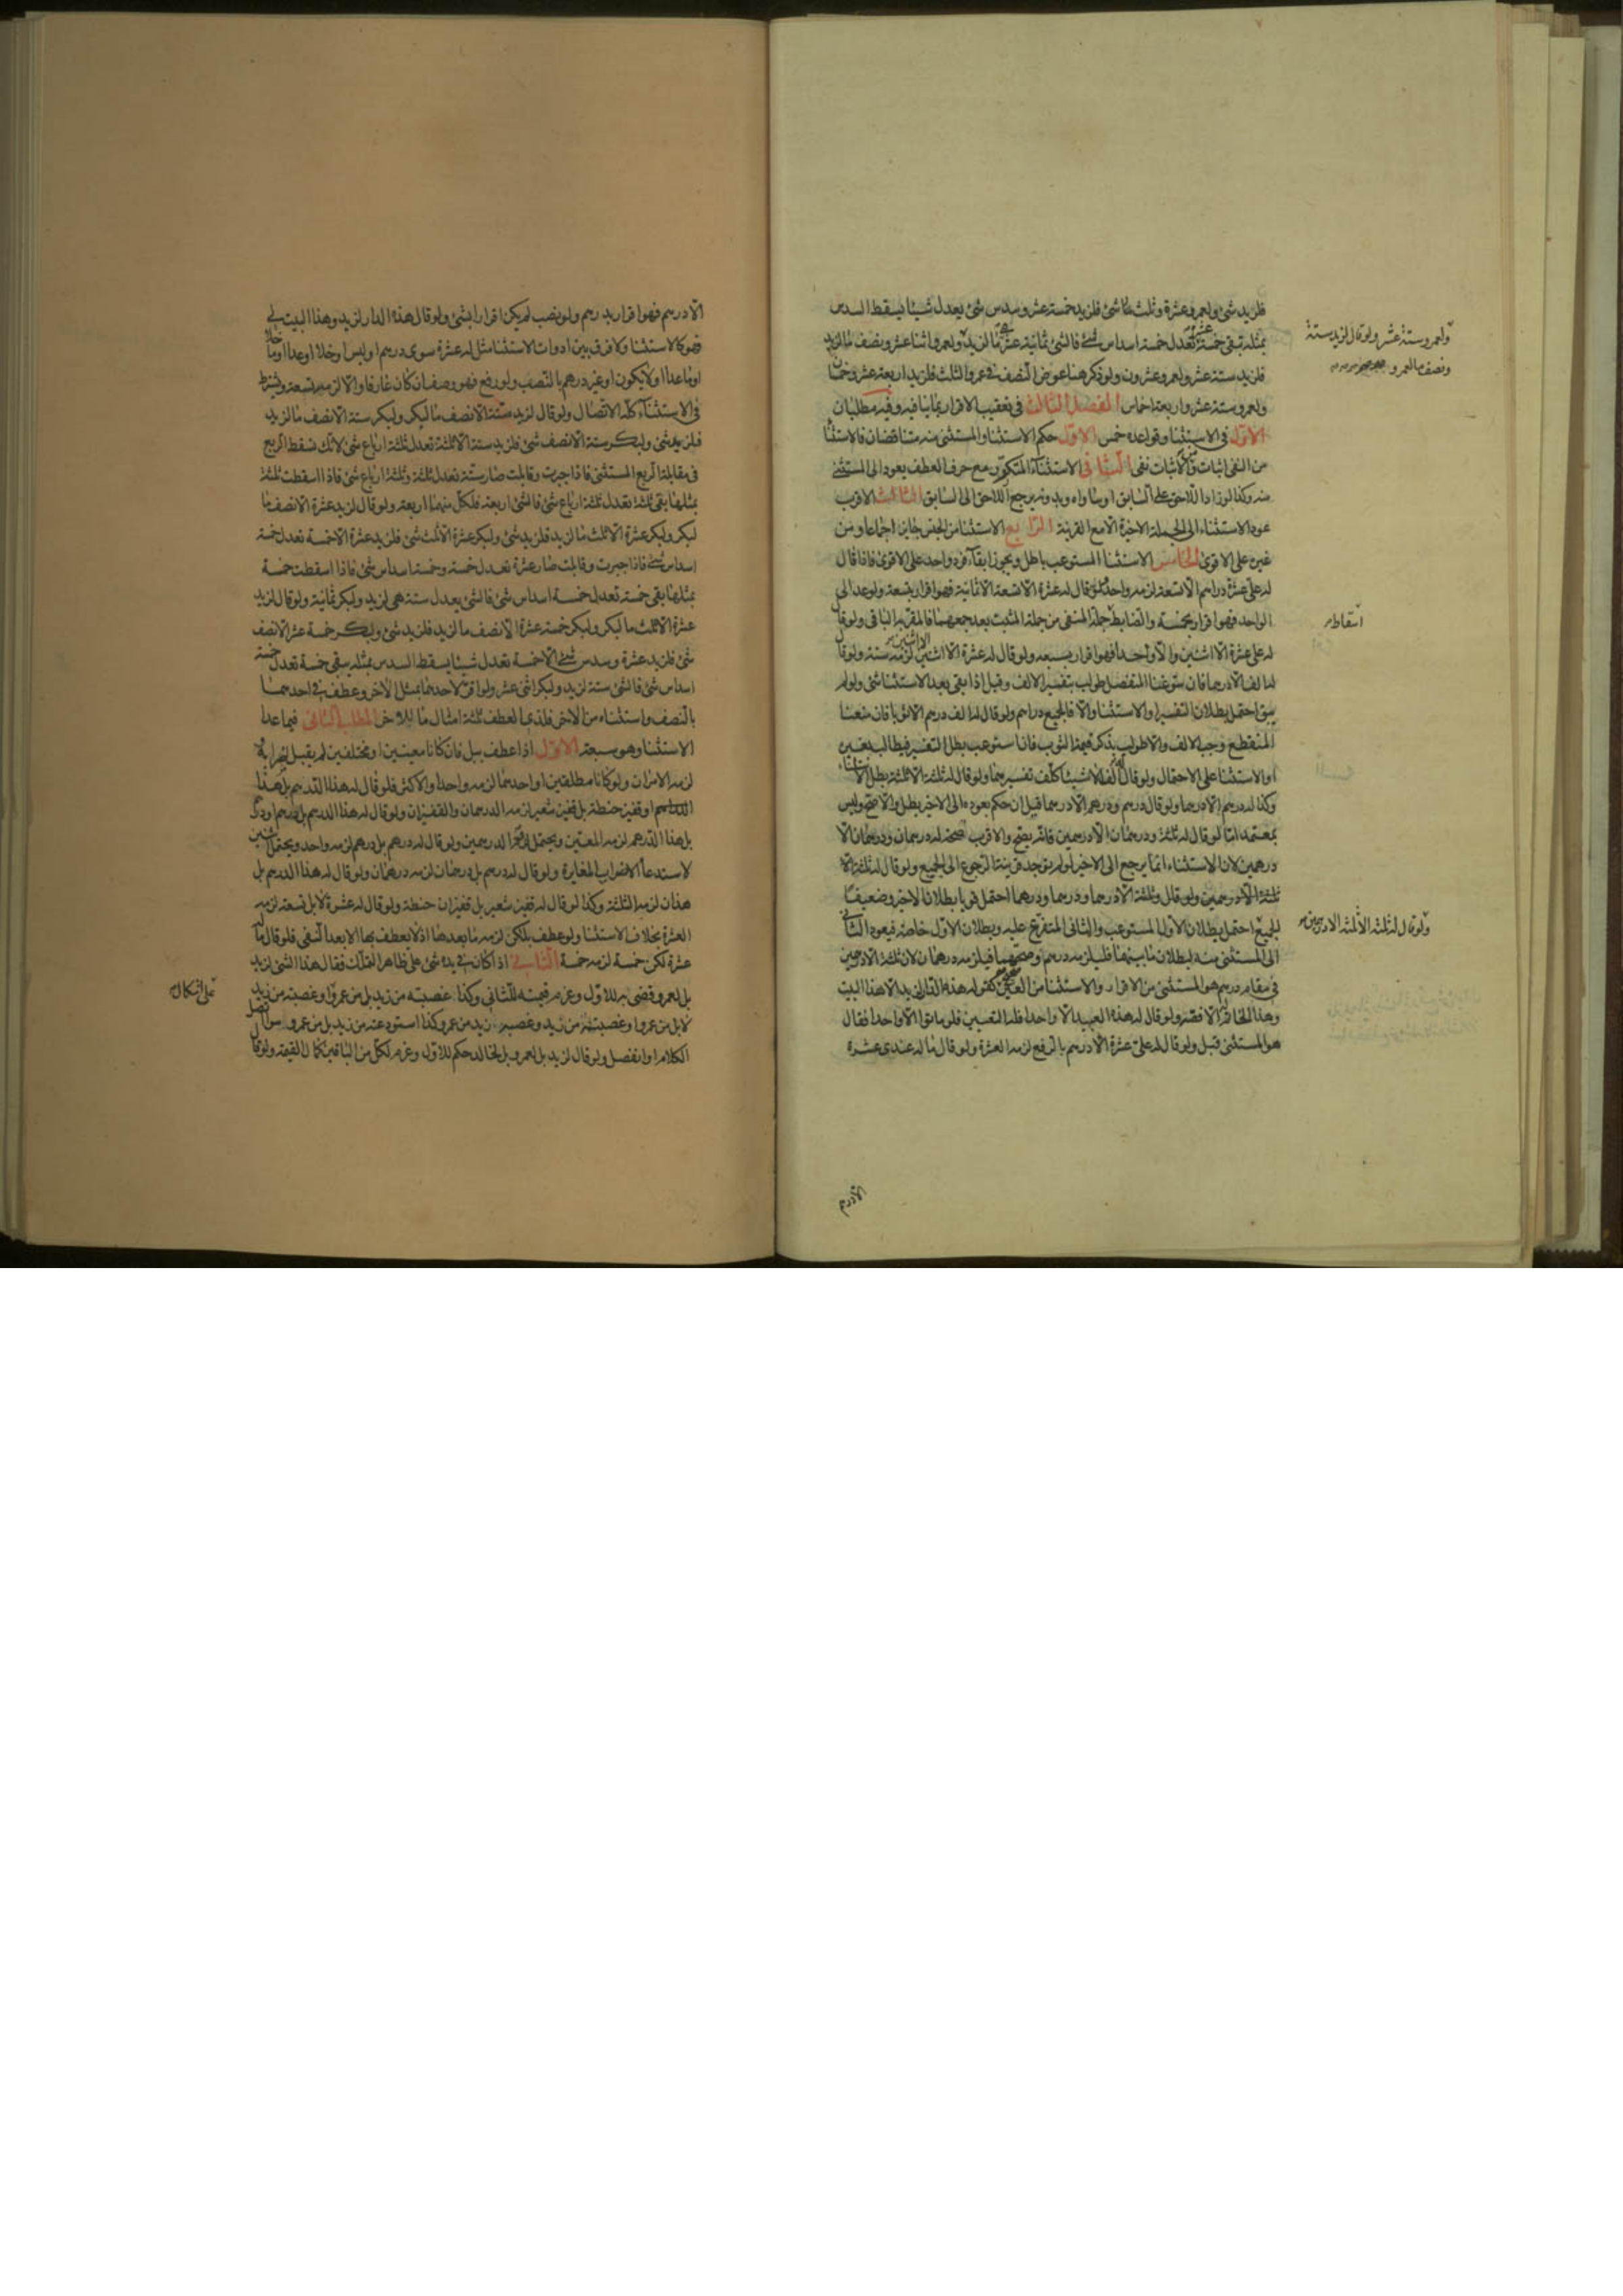 فلزيد شئ ولعمرو عشرة وثلث شئ فلزيد خمسة عشر وسدس شئ يعدل شيئا يسقط السدس
بمثله تبقى خمسة عشر تعدل خمسة اسداس شئ فالشئ ثمانية عشر لزيد ولعمرو
فلزيد ستة عشر ولعمرو عشرون ولو ذكر هنا عوض النصف في عمرو الثلث فلزيد اربعة عشر وخمسان
ولعمرو ستة عشر واربعة اخماس الفصل الثالث في تعقيب الاقرار بما ينافيه وفيه مطلبان
الاول في الاستثنا وقواعده خمس الاول حكم الاستثنا والمستثنى منه متناقضان فالاستثنا
من النفى اثبات ومن الاثبات نفى الثانى الاستثناء المتكرر مع حرف العطف يعود الى المستثنى
منه وكذا لو زاد اللاحق على السابق او ساواه وبدونه يرجع اللاحق الى السابق الثالث الاقرب
عود الاستثناء الى الجملة الاخيرة الا مع القرينة الرابع الاستثنا من الجنس جايز اجماعا ومن
غيره على الاقوى الخامس الاستثنا المستوعب باطل ويجوز ابقاء فرد واحد على الاقوى فاذا قال
له على عشرة دراهم الا تسعة لزمه واحد فلو قال له عشرة الا تسعة الا ثمانية فهو اقرار بتسعة ولو عد الى
الواحد فهو اقرار بخمسة والضابط جملة المنفى من جملة المثبت بعد جمعهما فالمقر به الباقى ولو قال
له على عشرة الا اثنين والا واحدا فهو اقرار بسبعة ولو قال له عشرة الا اثنين الا اثنين لزمه ستة ولو قال
له الف الا درهما فان سوغنا المنفصل طولب بتفسير الالف وقبل اذا بقى بعد الاستثنا شئ ولو لم
يبق احتمل بطلان التفسير والاستثنا والا فالجميع دراهم ولو قال له الف درهم الا ثوبا فان منعنا
المنقطع وجب الالف والا طولب بذكر قيمة الثوب فان استوعب بطل التفسير فيطالب بغيره
او الاستثنا على الاحتمال ولو قال الف الا شيئا كلف تفسيرهما ولو قال له ثلثة الا ثلثة بطل الاستثناء
وكذا له درهم الا درهما ولو قال درهم ودرهم الا درهما قيل ان حكم بعوده الى الاخير بطل والا صح وليس
بمعتمد اما لو قال له ثلثة ودرهمان الا درهمين فانه يصح والاقرب صحة له درهمان ودرهمان الا
درهمين لان الاستثناء انما يرجع الى الاخير لو لم يوجد قرينة الرجوع الى الجميع ولو قال له ثلثة الا
ثلثة الا درهمين ولو قال وثلثة الا درهما ودرهما ودرهما احتمل قويا بطلان الاخير وضعيفا
الجميع احتمل بطلان الاول المستوعب والثانى المتفرع عليه وبطلان الاول خاصة فيعود الثانى
الى المستثنى منه لبطلان ما بينهما فليلزمه درهم وصحتهما فيلزمه درهمان لان ثلثة الا درهمين
في مقام درهم هو المستثنى من الاقرار والاستثنا من العين صحيح كقوله هذه الدار لزيد الا هذا البيت
وهذا الخاتم الا فصه ولو قال له هذه العبيد الا واحدا فله التعيين فلو ماتوا الا واحدا فقال
هو المستثنى قبل ولو قال له على عشرة الا درهم بالرفع لزمه العشرة ولو قال ماله عندى عشرة
ولعمرو ستة عشر ولو قال لزيد ستة
ونصف ما لعمرو
اسقاط
ولو قال له ثلثة الا ثلثة الا درهمين
الا درهم
الا درهم فهو اقرار بدرهم ولو نصب لم يكن اقرارا بشئ ولو قال هذه الدار لزيد وهذا البيت لى
فهو كالاستثنا ولا فرق بين ادوات الاستثنا مثل له عشرة سوى درهم او ليس او خلا او عدا او ما خلا
او ما عدا او لا يكون او غير درهم بالنصب ولو رفع فهو وصف ان كان عارفا والا لزمه تسعة ويشترط
في الاستثناء كله الاتصال ولو قال لزيد ستة الا نصف ما لبكر ولبكر ستة الا نصف ما لزيد
فلزيد شئ ولبكر ستة الا نصف شئ فلزيد ستة الا ثلثة تعدل ثلثة ارباع شئ لانك تسقط الربع
في مقابلة الربع المستثنى فاذا جبرت وقابلت صار ستة تعدل ثلثة وثلثة ارباع شئ فاذا اسقطت ثلثة
بمثلها بقى ثلثة تعدل ثلثة ارباع شئ فالشئ اربعة فلكل منهما اربعة ولو قال لزيد عشرة الا نصف ما
لبكر ولبكر عشرة الا ثلث ما لزيد فلزيد شئ ولبكر عشرة الا ثلث شئ فلزيد عشرة الا خمسة تعدل خمسة
اسداس شئ فاذا جبرت وقابلت صار عشرة تعدل خمسة وخمسة اسداس شئ فاذا اسقطت خمسة
بمثلها بقى خمسة تعدل خمسة اسداس شئ فالشئ يعدل ستة هى لزيد ولبكر ثمانية ولو قال لزيد
عشرة الا ثلث ما لبكر ولبكر خمسة عشرة الا نصف ما لزيد فلزيد شئ ولبكر خمسة عشر الا نصف
شئ فلزيد عشرة وسدس شئ الا خمسة تعدل شيئا يسقط السدس بمثله يبقى خمسة تعدل خمسة
اسداس شئ فالشئ ستة لزيد ولبكر اثنى عشر ولو اقر لاحدهما بمثل الاخر وعطف في احدهما
بالنصف واستثناه من الاخر فلذى العطف ثلثة امثال ما للاخر المطلب الثانى فيما عدا
الاستثنا وهو سبعة الاول اذا عطف ببل فان كانا معينين او مختلفين لم يقبل اضرابه
لزمه الامران ولو كانا مطلقين او احدهما لزمه واحد او الاكثر فلو قال له هذا الدرهم بل هذا
الدرهم او قفيز حنطة بل قفيز شعير لزمه الدرهمان والقفيزان ولو قال له هذا الدرهم بل درهم او درهم
بل هذا الدرهم لزمه المعين ويحتمل الدرهمين ولو قال له درهم بل درهم لزمه واحد ويحتمل اثنين
لاستدعاء الاضراب المغايرة ولو قال له درهم بل درهمان لزمه درهمان ولو قال له هذا الدرهم بل
هذان لزمه الثلثة وكذا لو قال له قفيز شعير بل قفيزان حنطة ولو قال له عشرة لا بل تسعة لزمه
العشرة بخلاف الاستثنا ولو عطف بلكن لزمه ما بعدها اذ لا يعطف بها الا بعد النفى فلو قال ماله
عشرة لكن خمسة لزمه خمسة الثانى اذا كان في يده شئ على ظاهر التملك فقال هذا الشئ لزيد
بل لعمرو قضى به للاول وغرم قيمته للثانى وكذا غصبته من زيد بل من عمرو او غصبته من زيد
لا بل من عمرو او غصبته من زيد وغصبه زيد من عمرو وكذا استودعته من زيد بل من عمرو سواء اتصل
الكلام او انفصل ولو قال لزيد بل لعمرو بل لخالد حكم للاول وغرم لكل من الباقين كمال القيمة ولو قال
على اشكال